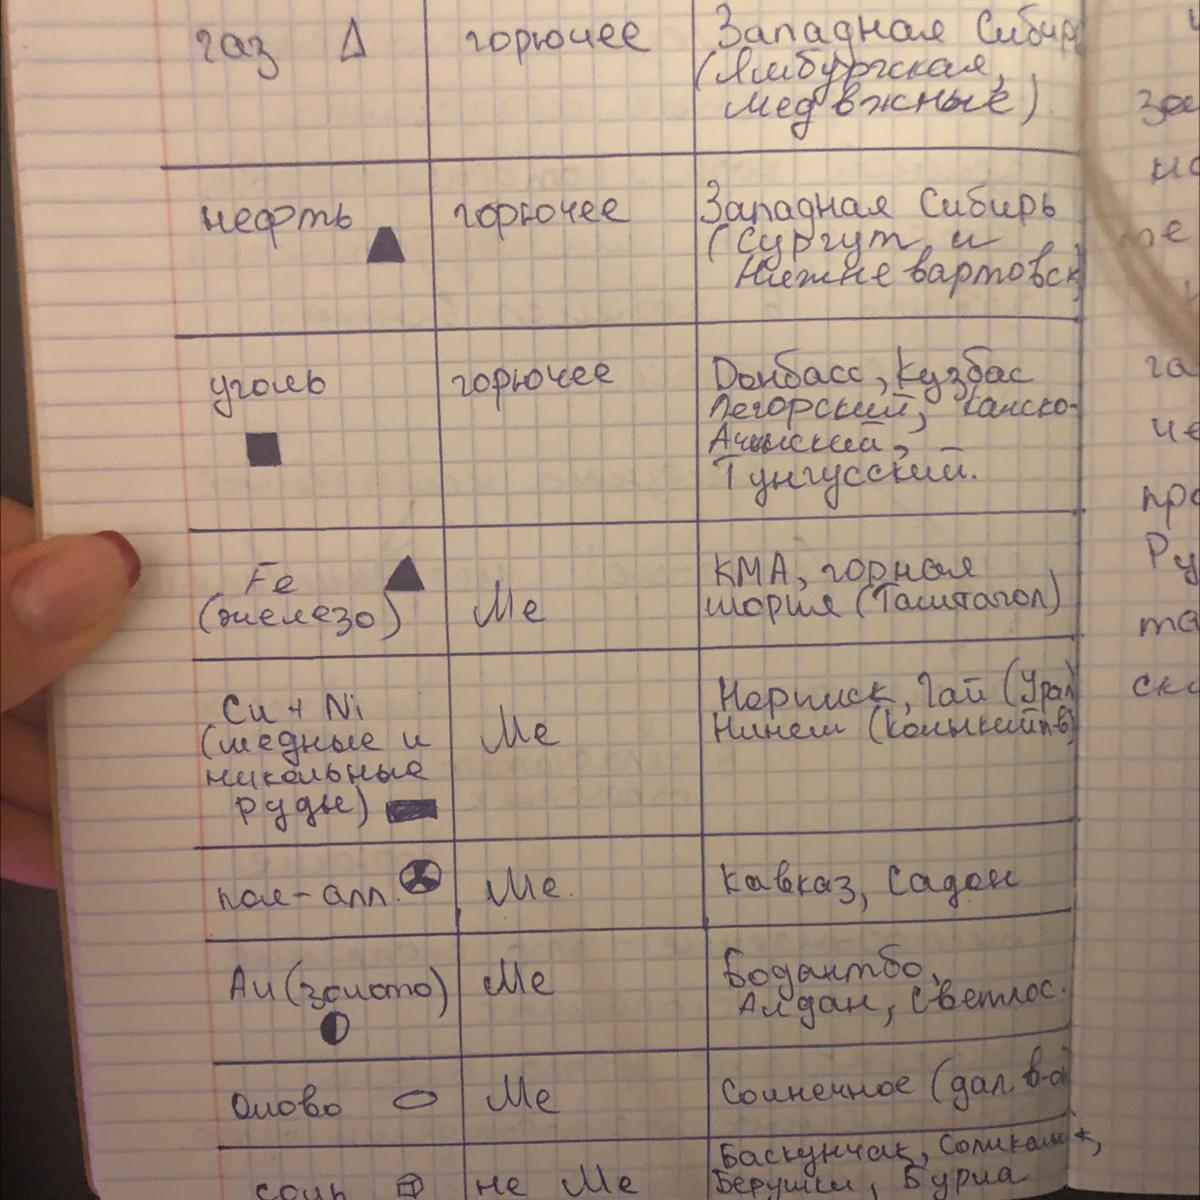 газ горючее Западная Сибирь
(Ямбургская,
медвжные)
нефть горючее Западная Сибирь
(Сургут и
Нижневартовск)
уголь горючее Донбасс, Кузбас
Печорский, Канско-
Ачинский,
Тунгусский.
Fe
(железо) Ме КМА, горная
шория (Таштагол)
Cu + Ni
(медные и
никольные
руды) Ме Норильск, Гай (Урал)
(Кольский п-в)
Ме Кавказ, Садон
Au (золото) Ме Бодантбо,
Алдан, Светлос.
Олово Ме Солнечное (дал. в-ок)
соль не Ме Баскунчак,
Бурла